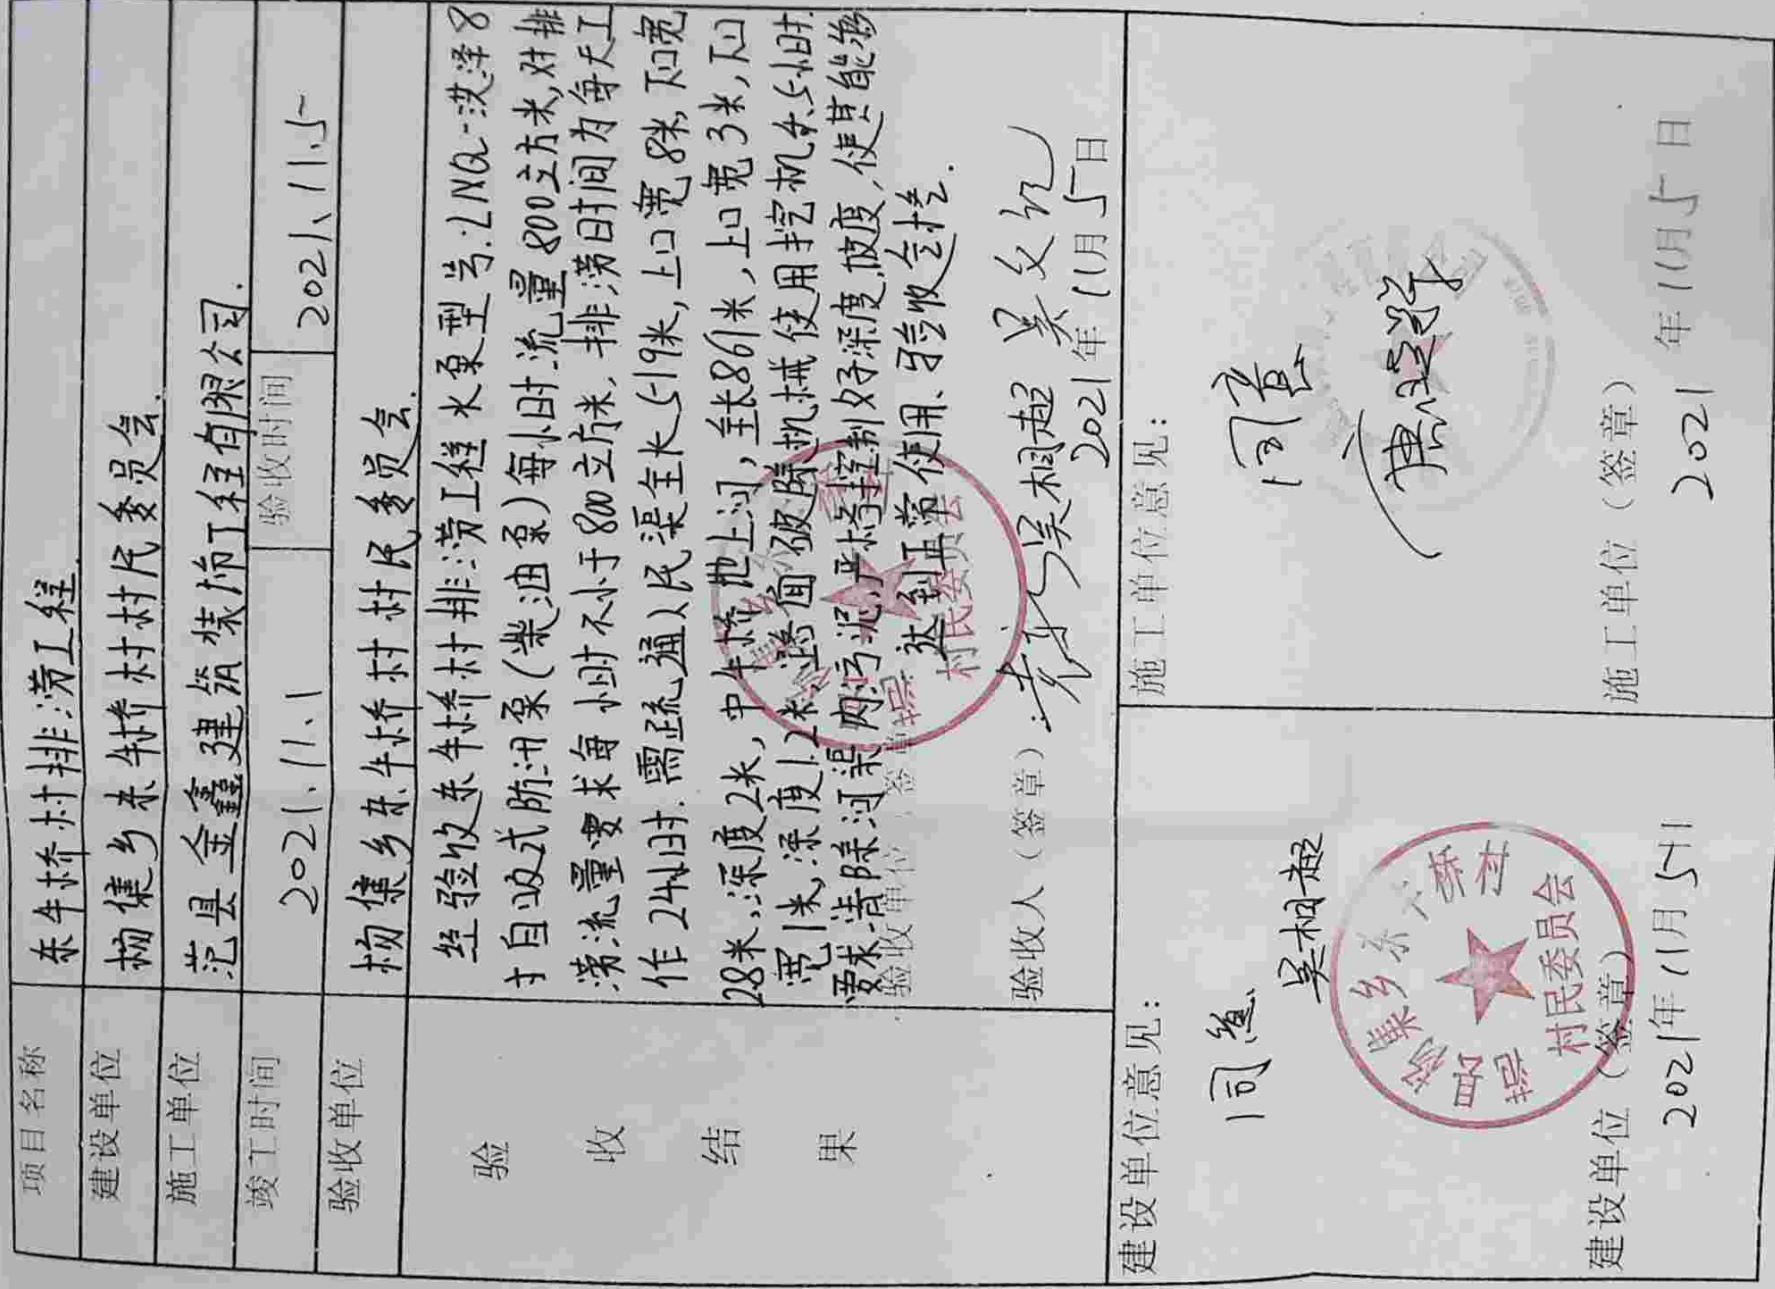 项目名称 东牛桥村排涝工程
建设单位 杨集乡东牛桥村村民委员会.
施工单位 范县金鑫建筑装饰工程有限公司.
竣工时间 2021.11.1 验收时间 2021.11.5
验收单位 杨集乡东牛桥村村民委员会.
验收结果
经验收东牛桥村排涝工程水泵型号:LNQ-洪泽8
寸自吸式防汛泵(柴油泵)每小时流量800立方米,对排
涝流量要求每小时不小于800立方米,排涝时间为每天工
作24小时.需疏通人民渠全长519米,上口宽8米,下口宽
28米,深度2米,中牛桥地上河,全长861米,上口宽3米,下口
宽1米,深度1.2米,路面破除机械使用挖机4.5小时.
要求清除河渠内污泥,严格控制好深度,坡度,使其能够
达到正常使用.验收合格.
验收单位(签章)
验收人(签章): 吴相超 吴文纪
2021年11月5日
建设单位意见:
同意
吴相超
建设单位(签章)
2021年11月5日
杨集乡东牛桥村
村民委员会
施工单位意见:
同意
施工单位(签章)
2021年11月5日